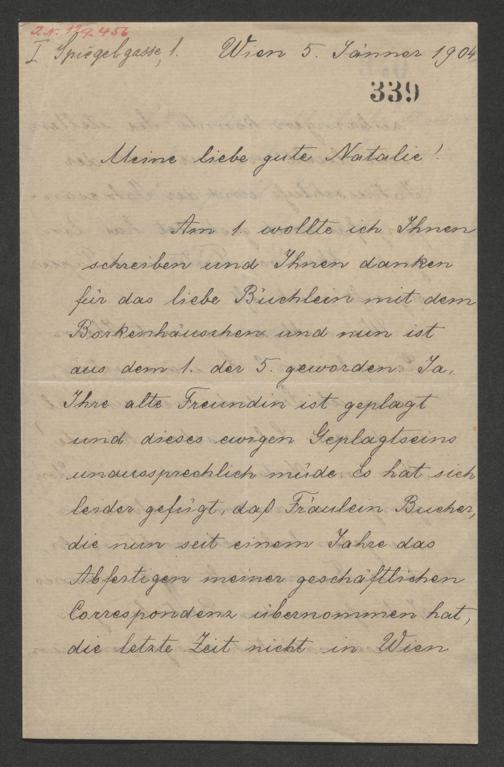 I. N. 129.456
I Spiegelgasse, 1. Wien 5. Jänner 1904
339
Meine liebe gute Natalie!
Am 1. wollte ich Ihnen
schreiben und Ihnen danken
für das liebe Büchlein mit dem
Borkenhäuschen und nun ist
aus dem 1. der 5. geworden. Ja,
Ihre alte Freundin ist geplagt
und dieses ewigen Geplagtseins
unaussprechlich müde. Es hat sich
leider gefügt, daß Fräulein Bucher,
die nun seit einem Jahre das
Abfertigen meiner geschäftlichen
Correspondenz übernommen hat,
die letzte Zeit nicht in Wien